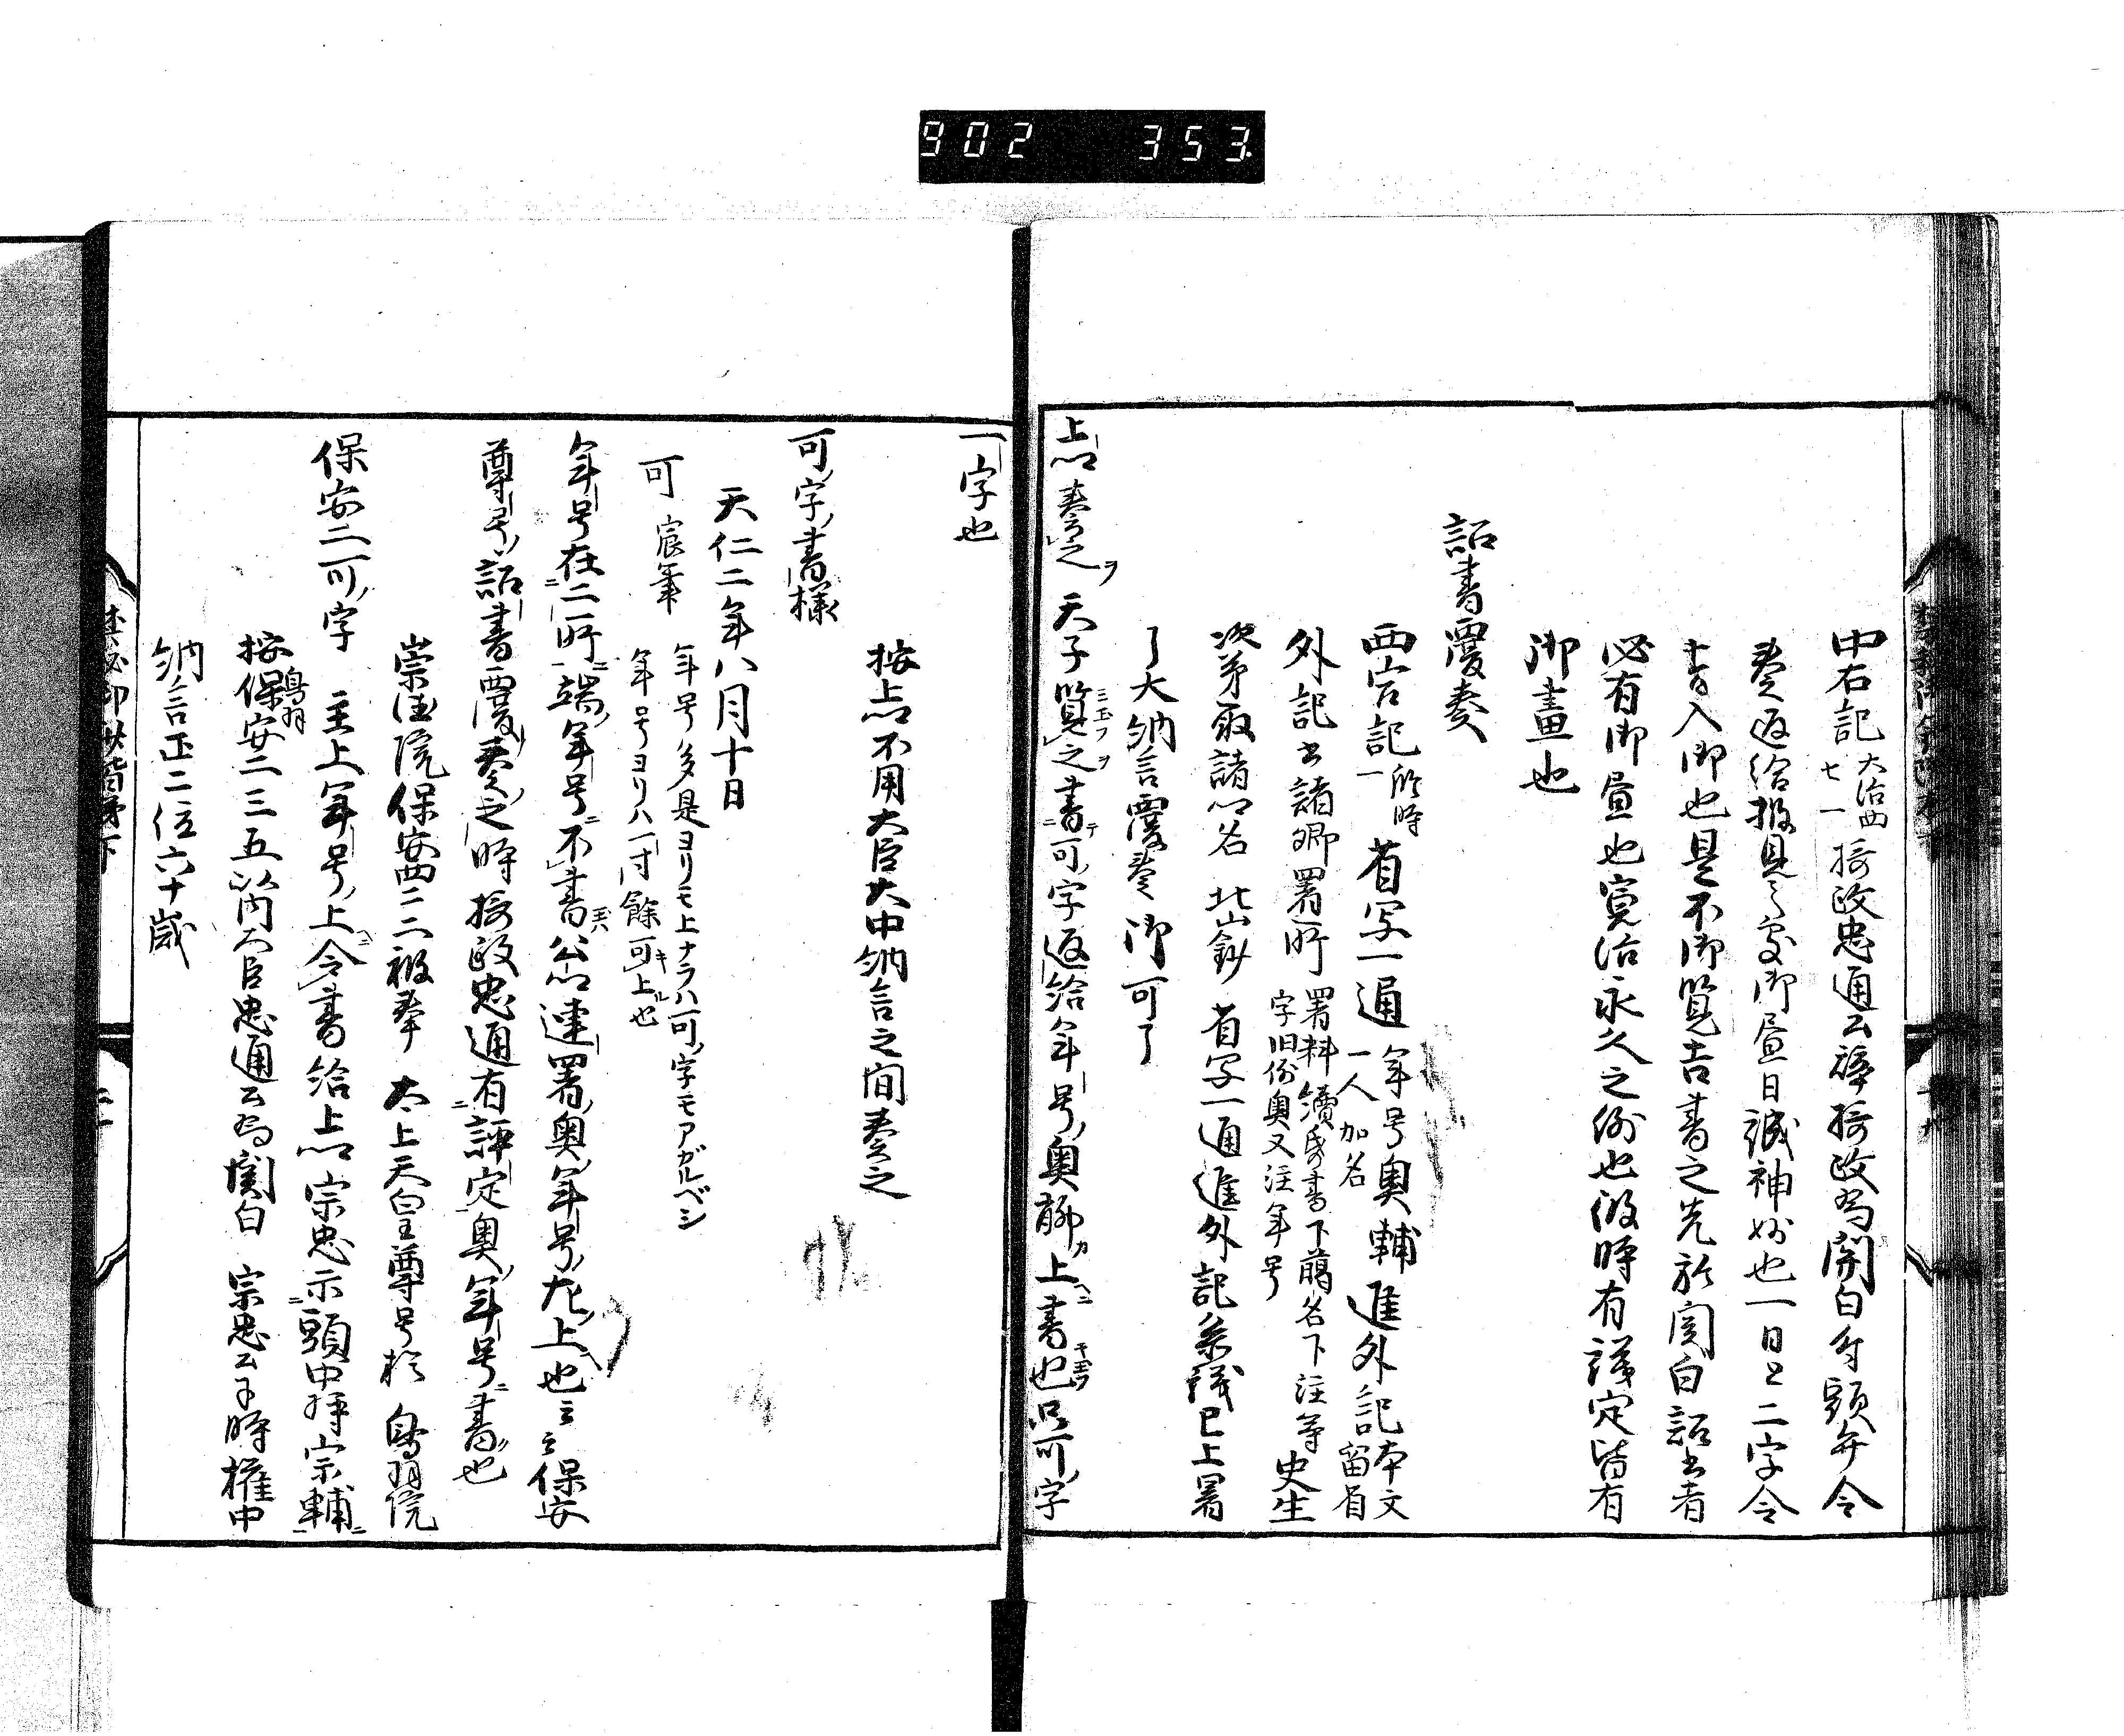 902 353
中右記 大治四 七一 摂政忠通公辞摂政為関白付頭弁令
奏返給披見之処御昼日誠神妙也一日ト二字令
書入御也是不御覧吉書之先於関白詔書者
必有御昼也寛治永久之例也彼時有議定皆有
御畫也
詔書覆奏
西宮記一 脩時 省写一通 年号奥輔 一人加名 進外記 本文留省
外記書諸卿署所 署料續昏書下﨟名下注等 字旧例奥又注年号 史生
次第取諸公名 北山鈔 省写一通進外記参議已上署
了大納言覆奏御可了
上卿奏之ヲ天子覧之書可字返給年号奥聊上書也只可字
一字也
按上卿不用大臣大中納言之間奏之
可字書様
天仁二年八月十日
可 宸筆 年号多是ヨリモ上ナラハ可字モアガルベシ
年号ヨリハ一寸餘可キ上ル也
年号在二所端年号不書公卿連署奥年号尤上也云云保安
尊号詔書覆奏之時摂政忠通有評定奥年号書也
崇徳院保安四二二被奉 太上天皇尊号於 鳥羽院
保安二可字 主上年号上令書給上卿宗忠示頭中将宗輔
按保安二三五以内大臣忠通公為関白 宗忠公于時権中
鳥羽
納言正二位六十歳
禁秘御抄階梯下